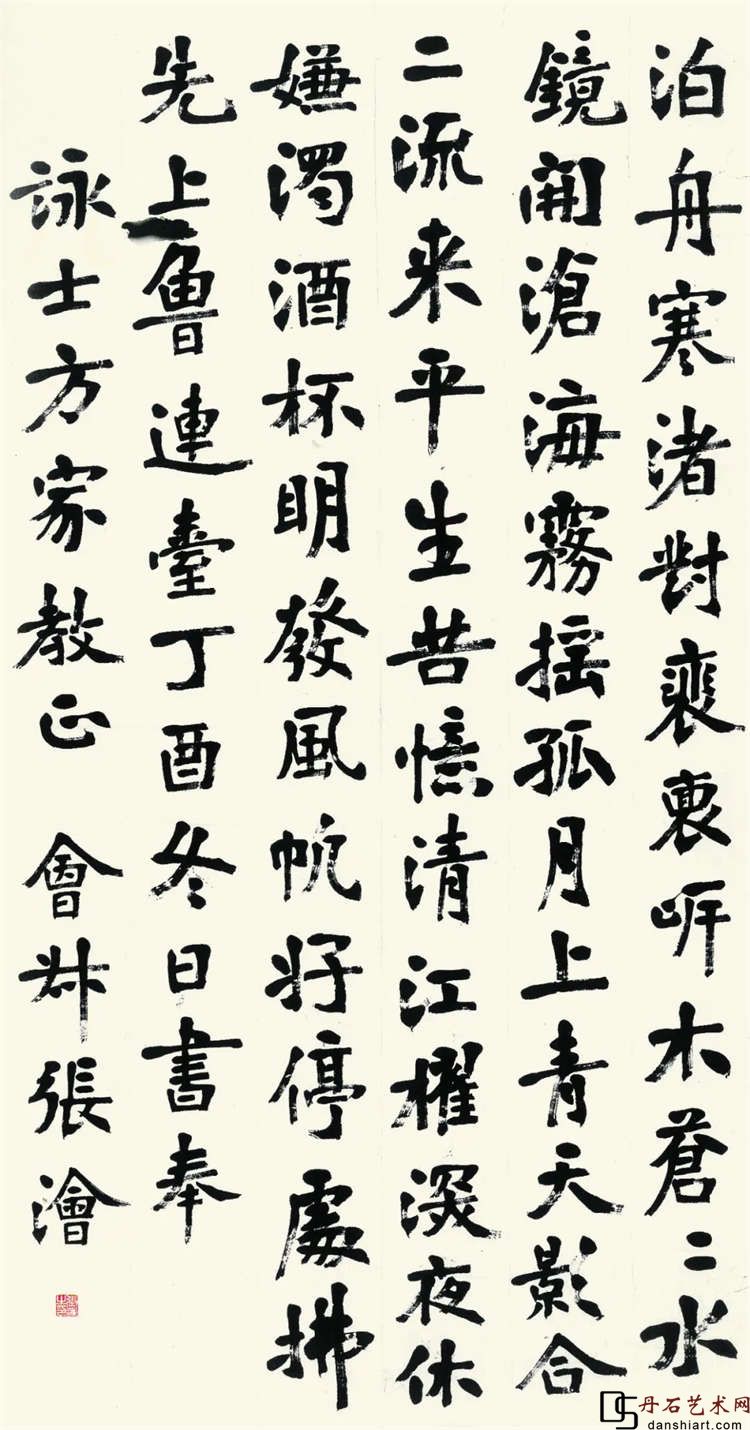 泊舟寒渚對裴岍木蒼二水
鏡開滄海霧搖孤月上青天影合
二流来平生苦憶清江櫂深夜休
嫌濁酒杯明發風帆好停處拂
先上魯連臺丁酉冬日書奉
詠士方家教正 會張澮
丹石艺术网
danshiart.com